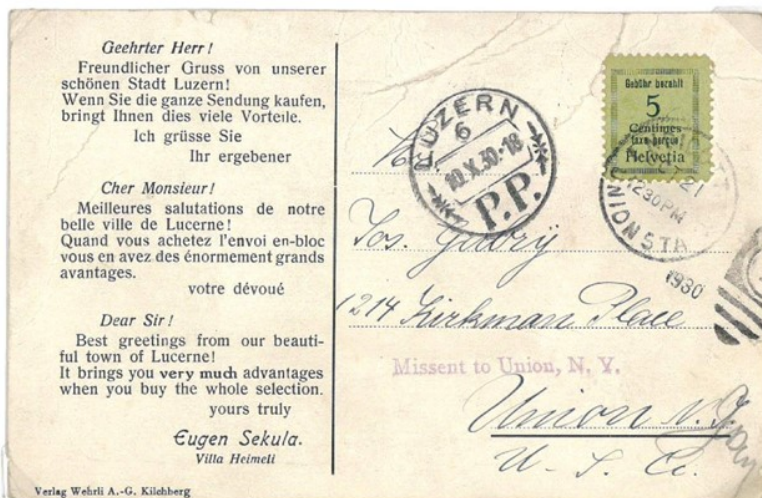 Geehrter Herr!
Freundlicher Gruss von unserer
schönen Stadt Luzern!
Wenn Sie die ganze Sendung kaufen,
bringt Ihnen dies viele Vorteile.
Ich grüsse Sie
Ihr ergebener
Cher Monsieur!
Meilleures salutations de notre
belle ville de Lucerne!
Quand vous achetez l'envoi en-bloc
vous en avez des énormement grands
avantages.
votre dévoué
Dear Sir!
Best greetings from our beauti-
ful town of Lucerne!
It brings you very much advantages
when you buy the whole selection.
yours truly
Eugen Sekula.
Villa Heimeli
Verlag Wehrli A.-G. Kilchberg
LUZERN
6
10.X.30.-18
P.P.
Gebühr bezahlt
5
Centimes
taxe perçue
Helvetia
21
1230PM
UNION STA
1930
Jos.
1214 Kirkman Place
Missent to Union, N. Y.
Union N.J.
U. S. A.